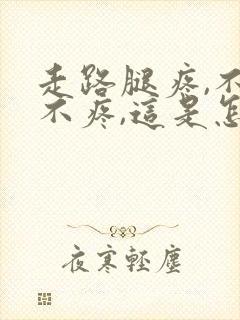 走路腿疼,不
不疼,這是怎
夜寒輕塵